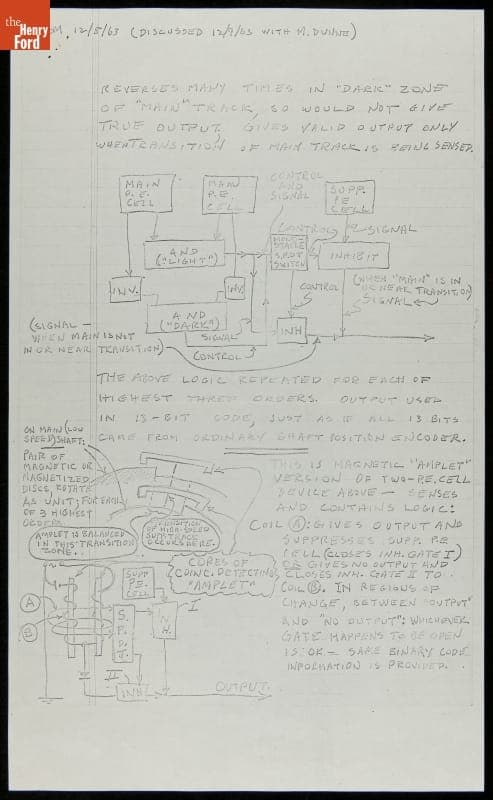 the
Henry
Ford
12/5/63 (DISCUSSED 12/9/63 WITH M. DUNNE)
REVERSES MANY TIMES IN "DARK" ZONE
OF "MAIN" TRACK, SO WOULD NOT GIVE
TRUE OUTPUT. GIVES VALID OUTPUT ONLY
WHEN TRANSITION OF MAIN TRACK IS BEING SENSED.
MAIN
P.E.
CELL
MAIN
P.E.
CELL
CONTROL
AND
SIGNAL
SUPP.
PE
CELL
CONTROL
SIGNAL
AND
("LIGHT")
MONO-
STABLE
S.P.D.T.
SWITCH
INHIBIT
INV.
INV.
CONTROL
(WHEN "MAIN" IS IN
OR NEAR TRANSITION)
SIGNAL
AND
("DARK")
INH
(SIGNAL —
WHEN MAIN IS NOT
IN OR NEAR TRANSITION)
SIGNAL
CONTROL
THE ABOVE LOGIC REPEATED FOR EACH OF
HIGHEST THREE ORDERS. OUTPUT USED
IN 13-BIT CODE, JUST AS IF ALL 13 BITS
CAME FROM ORDINARY SHAFT POSITION ENCODER.
ON MAIN (LOW
SPEED) SHAFT:
PAIR OF
MAGNETIC OR
MAGNETIZED
DISCS, ROTATE
AS UNIT; FOR EACH
OF 3 HIGHEST
ORDERS
AMPLET IS BALANCED
IN THIS TRANSITION
ZONE
TRANSITION
OF HIGH-SPEED
SUPP. TRACK
OCCURS HERE.
CORES OF
COINC. DETECTING
"AMPLET"
THIS IS MAGNETIC "AMPLET"
VERSION OF TWO-P.E. CELL
DEVICE ABOVE — SENSES
AND CONTAINS LOGIC:
COIL A: GIVES OUTPUT AND
SUPPRESSES SUPP. PE
CELL (CLOSES INH. GATE I)
OR GIVES NO OUTPUT AND
CLOSES INH. GATE II TO
COIL B. IN REGIONS OF
CHANGE, BETWEEN "OUTPUT"
AND "NO OUTPUT": WHICHEVER
GATE HAPPENS TO BE OPEN
IS OK — SAME BINARY CODE
INFORMATION IS PROVIDED.
SUPP
P.E.
CELL
A
B
S.
P.
D.
T.
I
N
H.
I
II
INH
OUTPUT